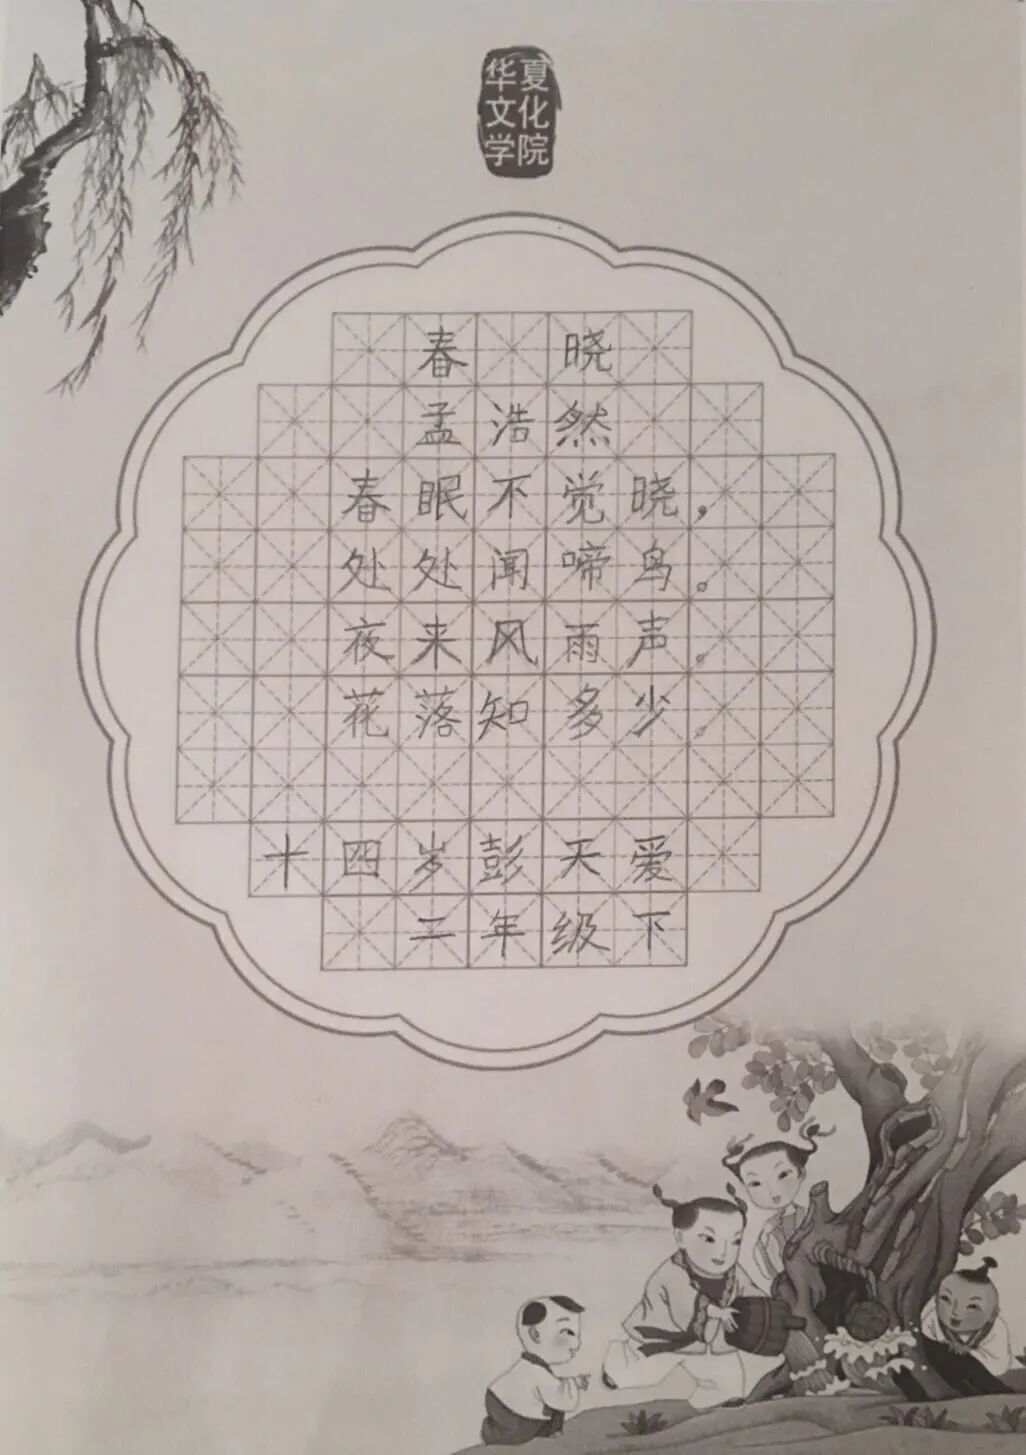 华夏
文化
学院
春晓
孟浩然
春眠不觉晓，
处处闻啼鸟。
夜来风雨声。
花落知多少。
十四岁彭天爱
二年级下